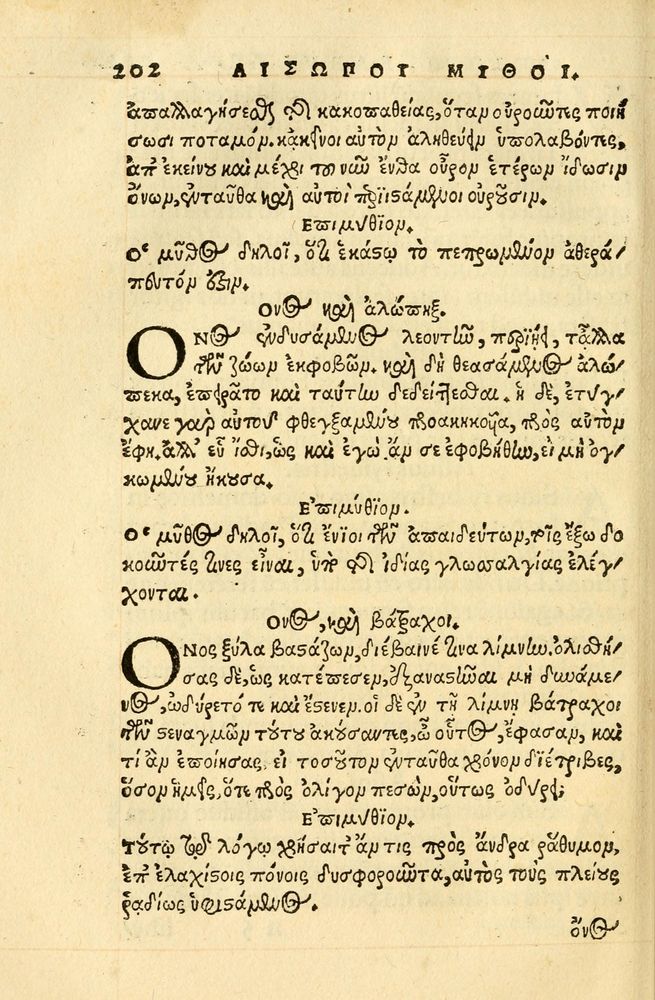 202 ΑΙΣΩΠΟΥ ΜΥΘΟΙ.
ἀπαλλαγήσεσθαι τῆς κακοπαθείας, ὅταν οὐροῦντες ποιή
σωσι ποταμόν. κἀκεῖνοι αὐτὸν ἀληθεύειν ὑπολαβόντες,
ἀπ' ἐκείνου καὶ μέχρι τοῦ νῦν ἔνθα οὖρον ἑτέρων ἴδωσιν
ὄνων, ἐνταῦθα καὶ αὐτοὶ περιϊστάμενοι οὐροῦσιν.
Επιμύθιον.
Ο μῦθος δηλοῖ, ὅτι ἑκάστῳ τὸ πεπρωμένον ἀθερά-
πευτόν ἐστιν.
Ονος καὶ ἀλώπηξ.
ΟΝος ἐνδυσάμενος λεοντῆν, περιῄει, τἆλλα
τῶν ζώων ἐκφοβῶν. καὶ δὴ θεασάμενος ἀλώ-
πεκα, ἐπειρᾶτο καὶ ταύτην δεδείττεσθαι. ἡ δὲ, ἐτύγ-
χανε γὰρ αὐτοῦ φθεγξαμένου προακηκουῖα, πρὸς αὐτὸν
ἔφη. ἀλλ' εὖ ἴσθι, ὡς καὶ ἐγὼ ἄν σε ἐφοβήθην, εἰ μὴ ὀγ-
κωμένου ἤκουσα.
Επιμύθιον.
Ο μῦθος δηλοῖ, ὅτι ἔνιοι τῶν ἀπαιδεύτων, τοῖς ἔξω δο
κοῦντές τινες εἶναι, ὑπὸ τῆς ἰδίας γλωσσαλγίας ἐλέγ-
χονται.
Ονος, καὶ βάτραχοι.
ΟΝος ξύλα βαστάζων, διέβαινέ τινα λίμνην. ὀλισθή-
σας δὲ, ὡς κατέπεσεν, ἐξαναστῆναι μὴ δυνάμε-
νος, ὠδύρετό τε καὶ ἔστενεν. οἱ δὲ ἐν τῇ λίμνῃ βάτραχοι
τῶν στεναγμῶν τούτου ἀκούσαντες, ὦ οὗτος, ἔφασαν, καὶ
τί ἂν ἐποίησας, εἰ τοσοῦτον ἐνταῦθα χρόνον διέτριβες,
ὅσον ἡμεῖς, ὅτε πρὸς ὀλίγον πεσὼν, οὕτως ὀδύρῃ;
Επιμύθιον.
Τούτῳ τῷ λόγῳ χρήσαιτ' ἄν τις πρὸς ἄνδρα ῥάθυμον,
ἐπ' ἐλαχίστοις πόνοις δυσφοροῦντα, αὐτὸς τοὺς πλείους
ῥᾳδίως ὑφιστάμενος.
ὄνος